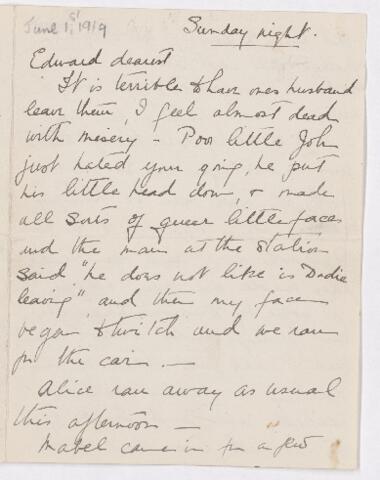 June 1st, 1919
Sunday night.
Edward dearest
It is terrible to have ones husband
leave them, I feel almost dead
with misery – Poor little John
just hated your going, he put
his little head down, & made
all sorts of queer little faces
and the man at the station
said, "he does not like is Dadie
leaving", and then my face
began to twitch and we ran
for the car. —
Alice ran away as usual
this afternoon —
Mabel came in for a few